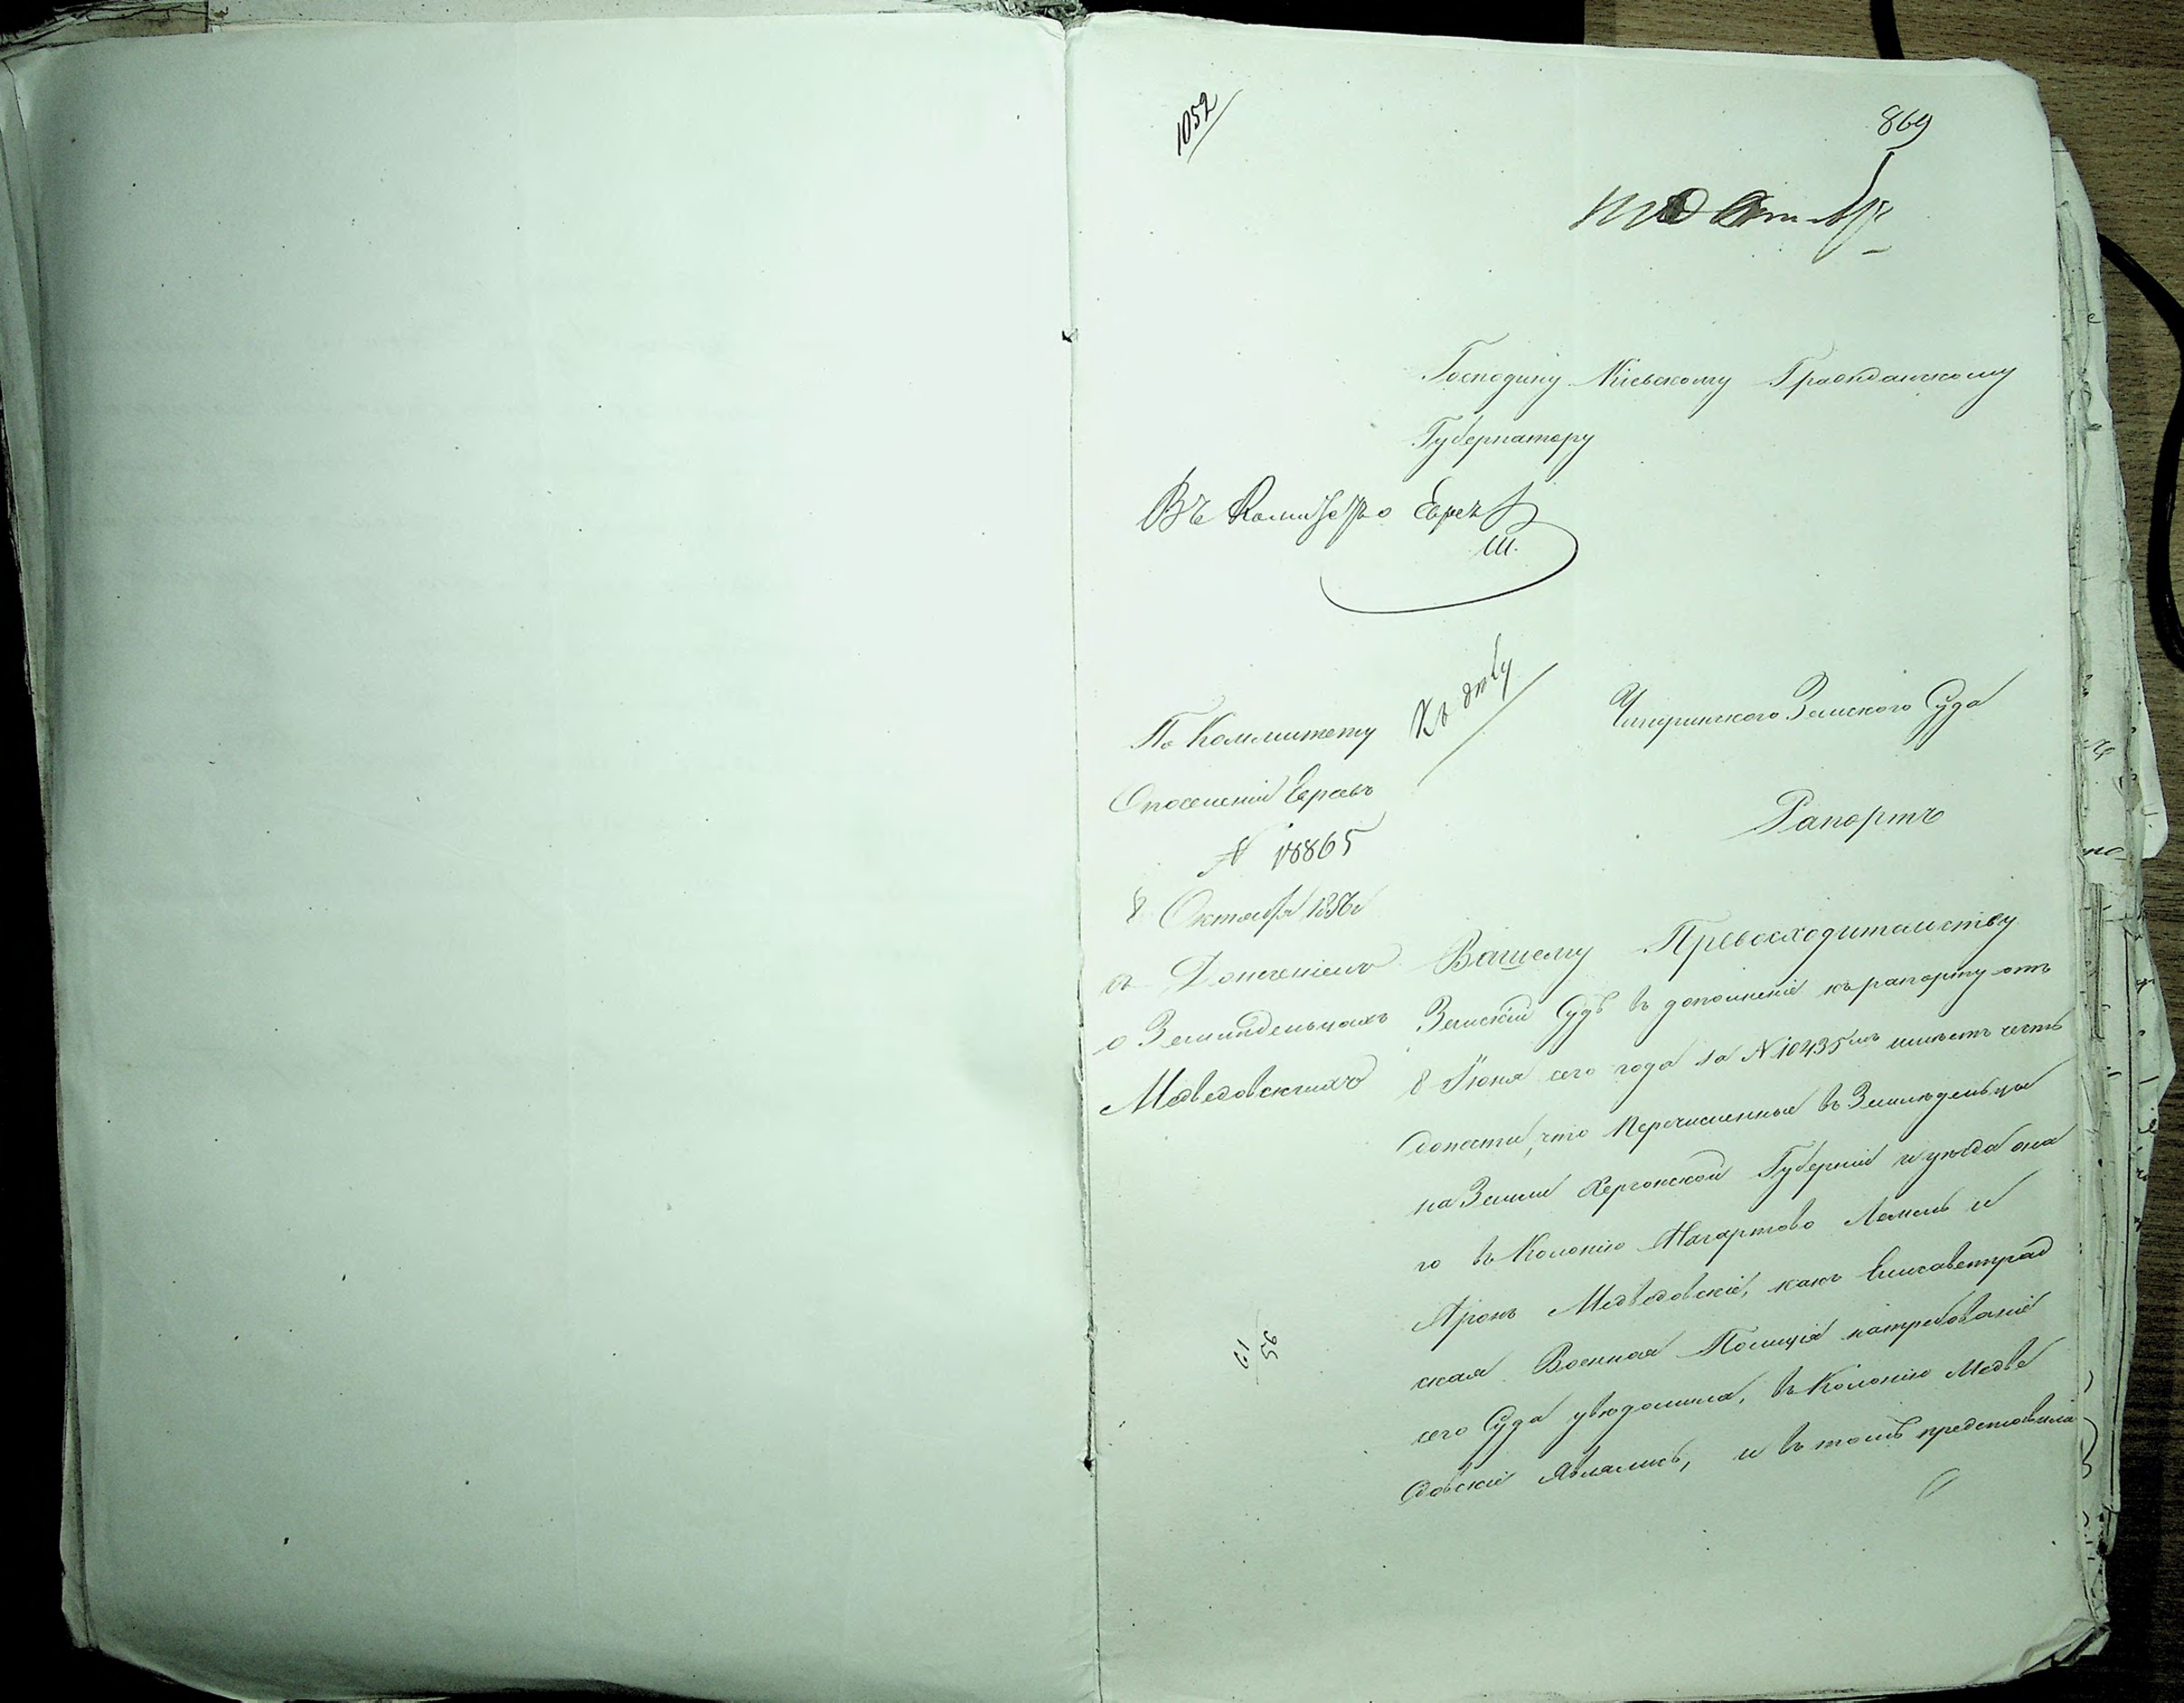 1052
869
Октабр
Господину Кіевскому Гражданскому
Губернатору
Въ Комитетъ о Евре
Къ дѣлу
По Коммитету
Чигиринского Земского Суда
О поселеніи Евреевъ
Рапортъ
N 18865
8 Октабря 1856
съ Донесеніемъ
о Земледельцахъ
Медведовскихъ
Вашему Превосходительству
Земскій Судъ въ дополненіе къ рапорту отъ
8 Іюня сего года за N 10435мъ имѣетъ честь
донести, что Перечисленные въ Земледельцы
на Земли Херсонской Губерніи и уѣзда она
го въ Колонію Нагартово Лемель и
Аронъ Медведовскіе, какъ Елисаветград
ская Военная Полиція натребованіе
сего Суда увѣдомила, въ Колонію Медве
довскіе Явились, и въ томъ представила
61
56